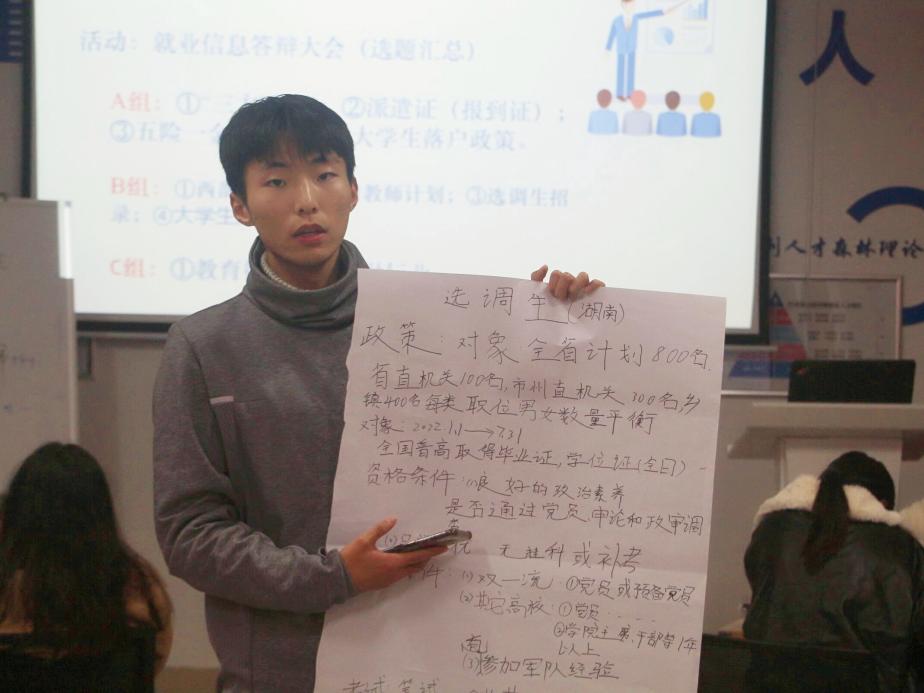 活动：就业信息答辩大会（选题汇总）
A组：①"三 ②派遣证（报到证）；
③五险一 大学生落户政策。
B组：①西 教师计划；③选调生招
录；④大学生
C组：①教育
人
人才森林理论
选调生(湖南)
政策：对象 全省计划800名.
省直机关100名,市州直机关300名,乡
镇400名每类职位男女数量平衡
对象：2022.1.1→7.31
全国普高取得毕业证,学位证(全日)
资格条件：良好的政治素养
是否通过党员,申论和政审调
无挂科或补考
件：(1)双一流：①党员或预备党员
(2)其它高校：①党员……
②学院主席,干部等1年
以上
(3)参加军队经验
考试：笔试